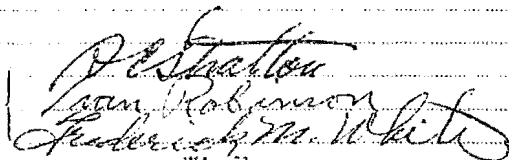 A E Stratton
Ivan Robinson
Frederick M. White